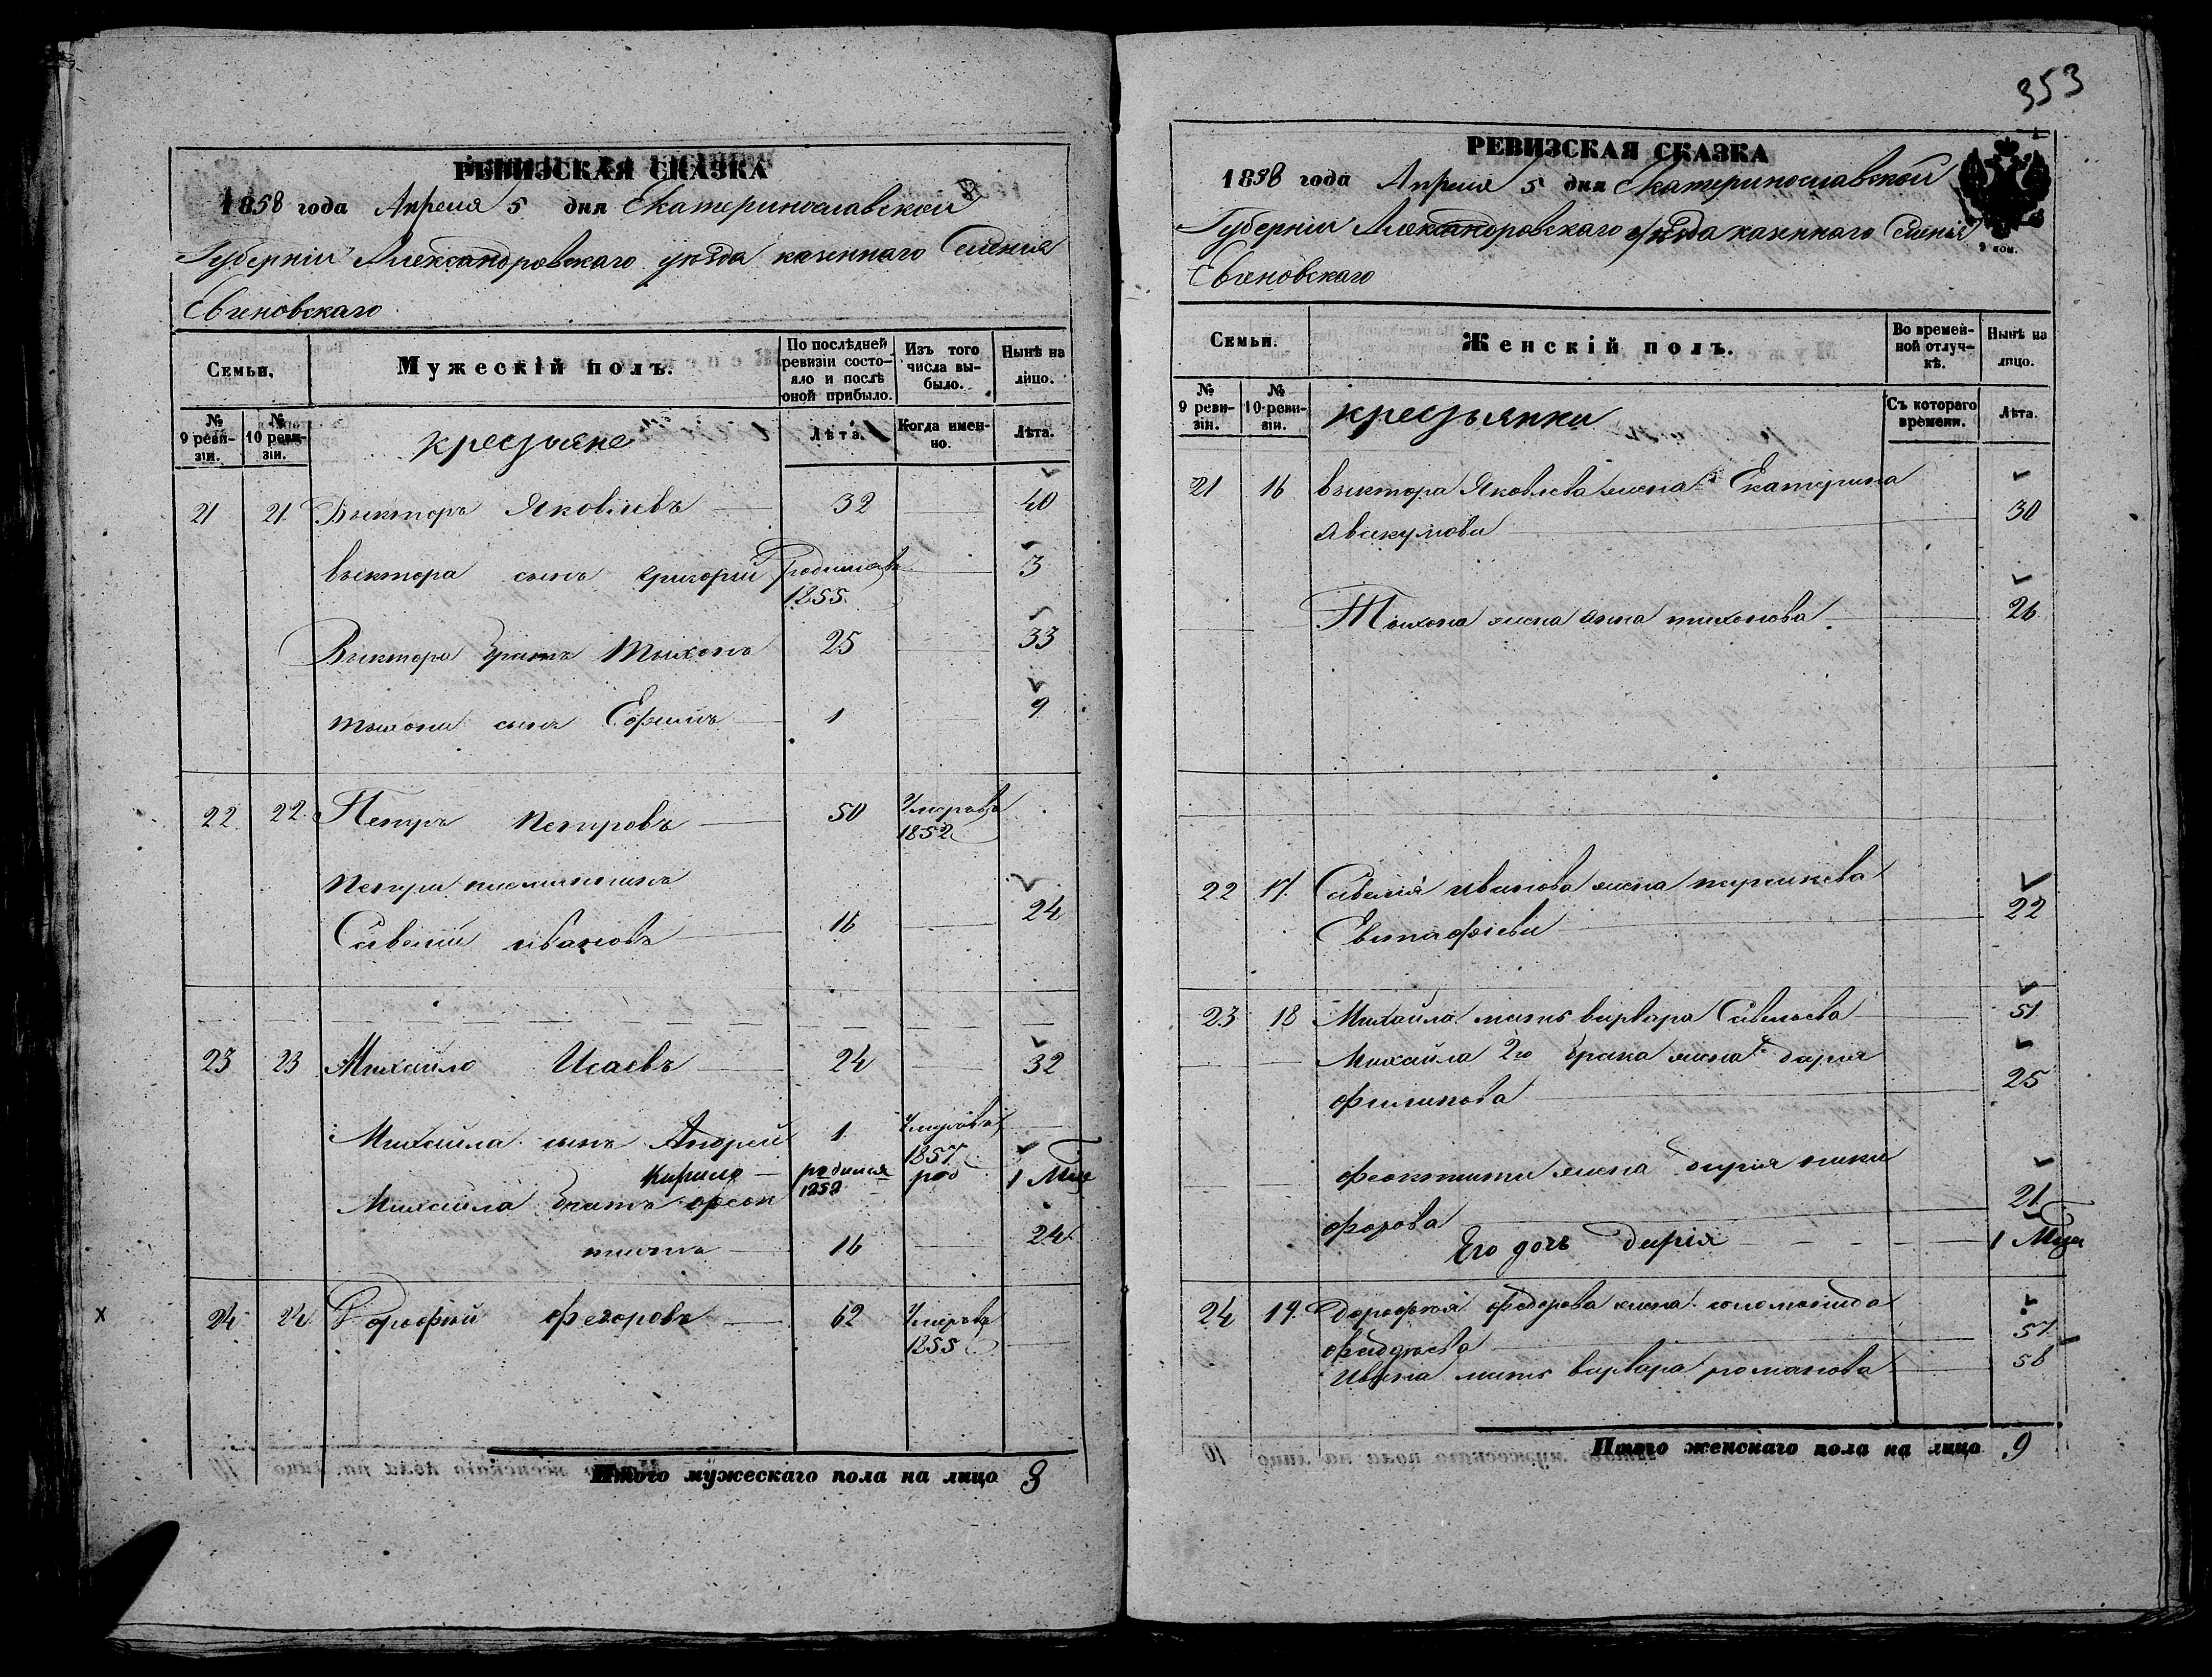 РЕВИЗСКАЯ СКАЗКА
1858 года Апреля 5 дня Екатеринославской
Губерніи Александровскаго уѣзда казеннаго Селенія
Евгеновскаго
Семьи.
Мужескій полъ.
По послѣдней ревизіи состояло и послѣ оной прибыло.
Изъ того числа выбыло.
Нынѣ на лицо.
№ 9 ревизіи.
№ 10 ревизіи.
крестьяне
Лѣта.
Когда именно.
Лѣта.
21 21 Выкторъ Яковлевъ 32 40
выктора сынъ григорій родился въ 1855 3
Выктора братъ Тыхонъ 25 33
тыхона сынъ Ефимъ 1 9
22 22 Петръ петровъ 50 Умеръ въ 1852
петра племянникъ
Савелій ивановъ 16 24
23 23 Михайло Исаевъ 24 32
Михайла сынъ Андрей 1 Умеръ въ 1857
Кирило родился 1858 год 1 Мца
Михайла братъ феок
тистъ 16 24
х 24 24 Дорофѣй федоровъ 62 Умеръ въ 1855
Итого мужескаго пола на лицо 8
353
РЕВИЗСКАЯ СКАЗКА
1858 года Апреля 5 дня Екатеринославской
Губерніи Александровскаго уѣзда казеннаго Селенія
Евгеновскаго
Семьи.
Женскій полъ.
Во временной отлучкѣ.
Нынѣ на лицо.
№ 9 ревизіи.
№ 10 ревизіи.
крестьянки
Съ котораго времени.
Лѣта.
21 16 выктора Яковлева жена Екатерина
авакумова 30
Тыхона жена анна тихонова 26
22 17 Савелія иванова жена
Евстафіева 22
23 18 Михайла мать варвара Савельева 51
Михайла 2го брака жена дарія
филипова 25
феоктиста жена дарія ники
форова 21
Его дочь дарія 1 Мца
24 19 Дорофѣя федорова жена соломонида
57
Ивана мать варвара романова 58
Итого женскаго пола на лицо 9